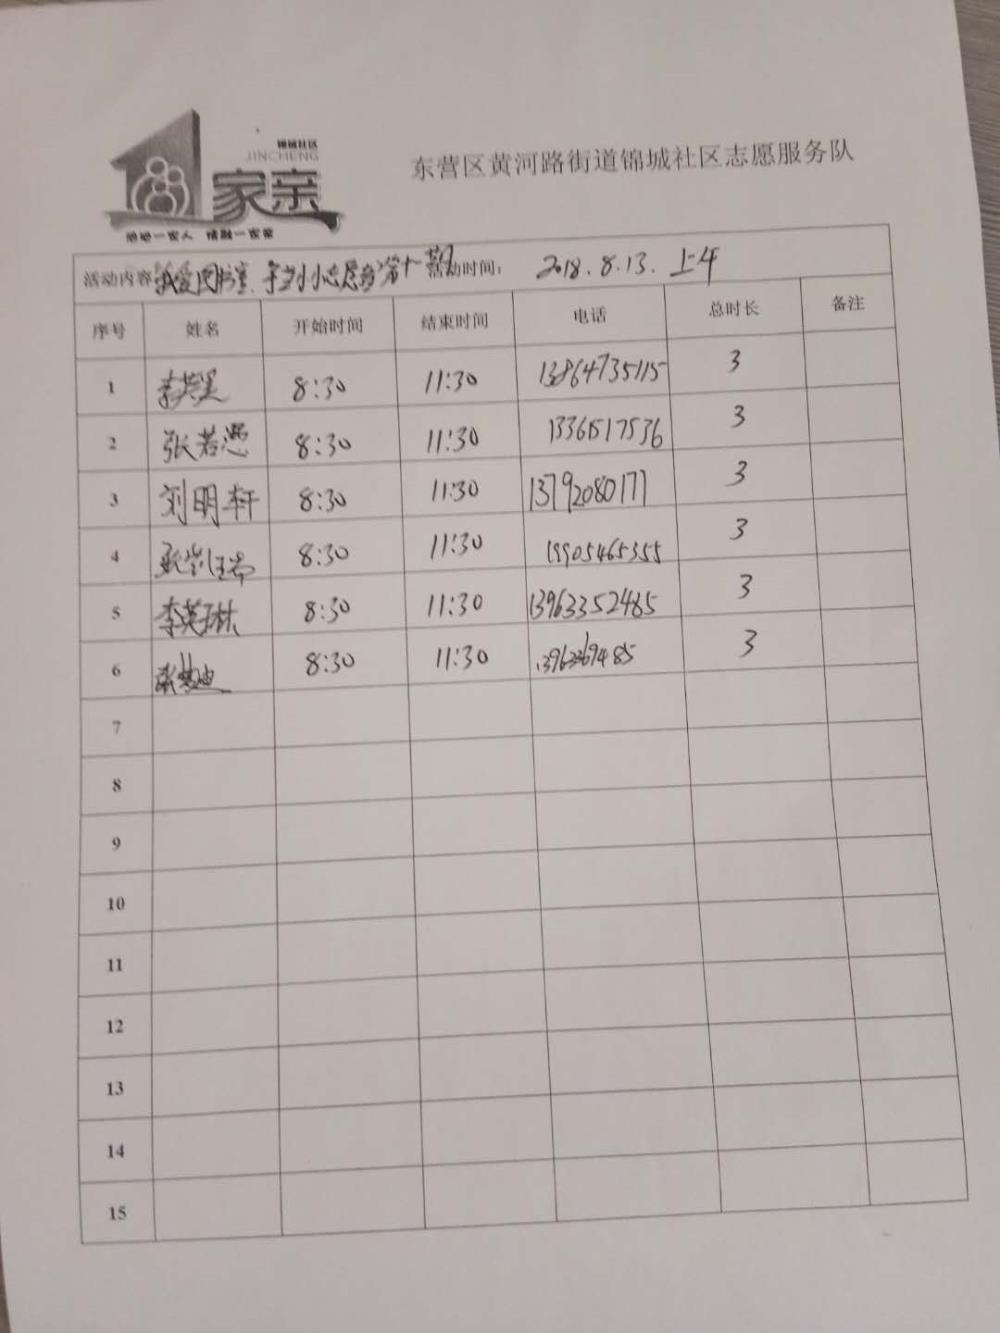 锦城社区
JINCHENG
家亲
情融一家亲
东营区黄河路街道锦城社区志愿服务队
活动内容 我爱图书室 小小志愿者 第十期 活动时间： 2018.8.13. 上午
序号 姓名 开始时间 结束时间 电话 总时长 备注
1 8:30 11:30 13864735115 3
2 张若愚 8:30 11:30 3
3 刘明轩 8:30 11:30 13792080177 3
4 8:30 11:30 19905465355 3
5 李英琳 8:30 11:30 13963352485 3
6 8:30 11:30 3
7
8
9
10
11
12
13
14
15